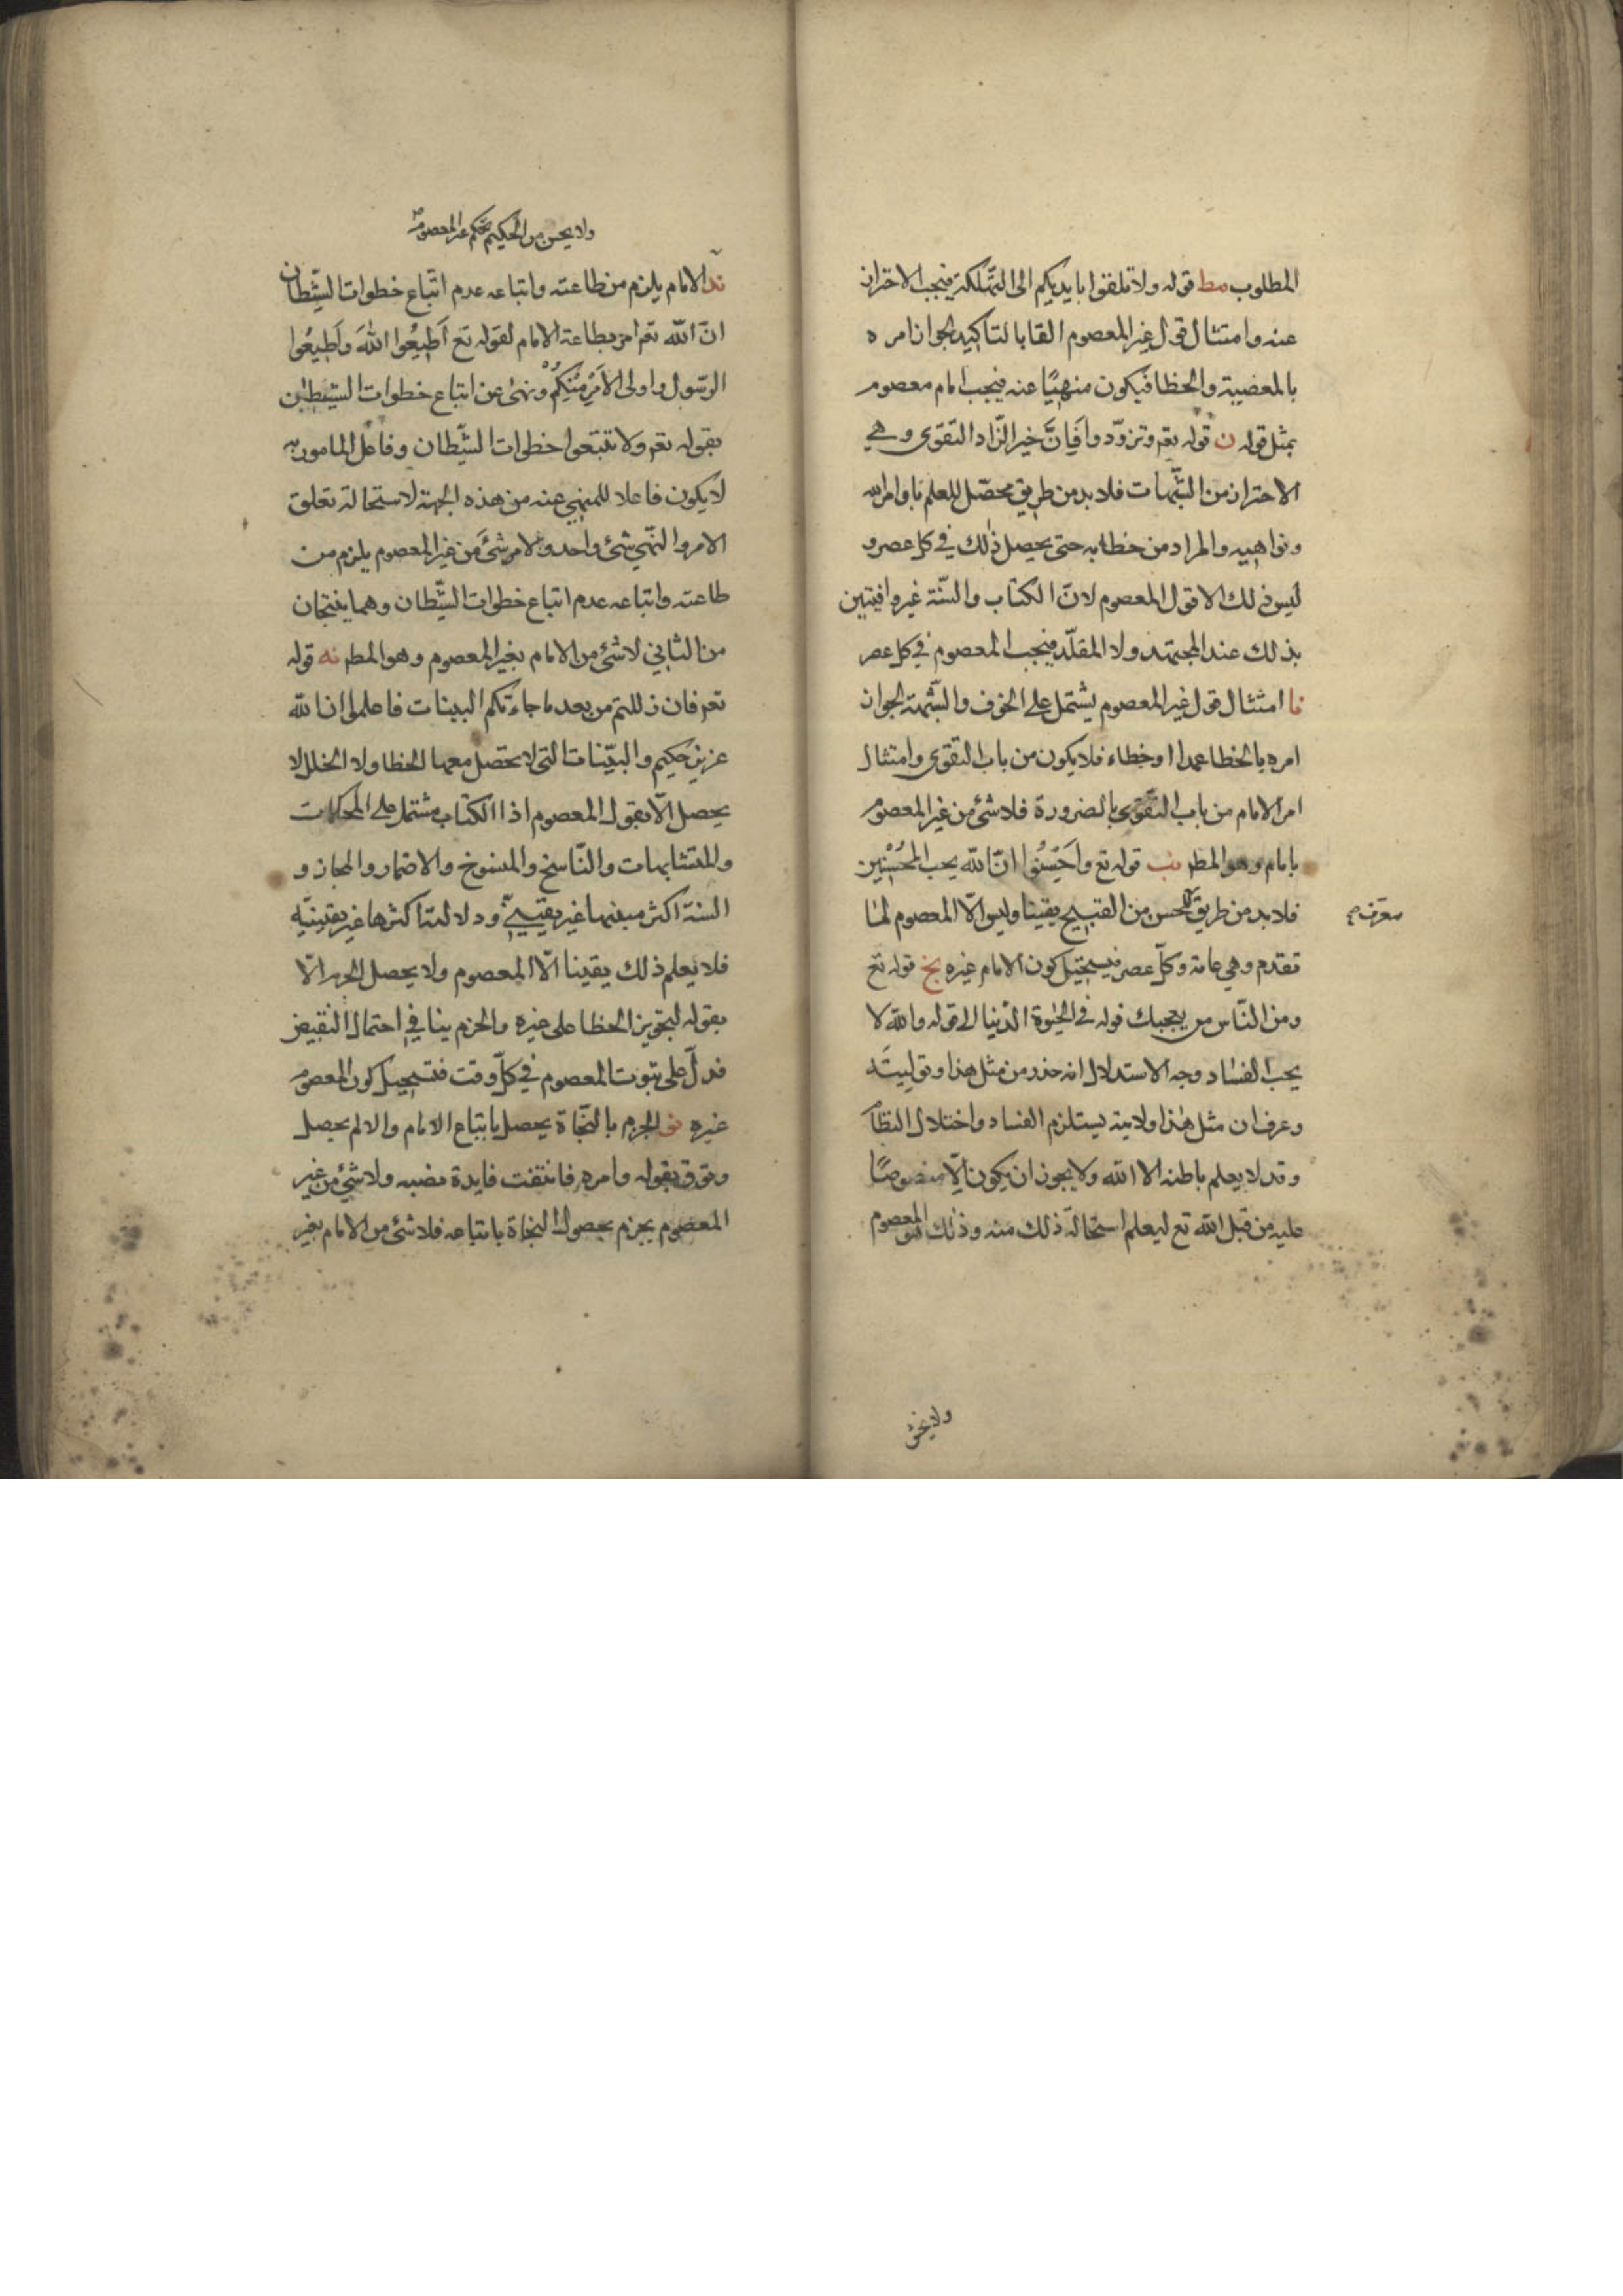 المطلوب مط قوله ولا تلقوا بايديكم الى التهلكة فيجب الاحتراز
عنه وامتثال قول غير المعصوم القا بالتاكيد لجواز امره
بالمعصية والخطا فيكون منهيا عنه فيجب امام معصوم
بمثل قوله ن قوله تعم وتزودوا فَاِنَّ خير الزاد التقوى وهي
الاحتراز من الشبهات فلا بد من طريق محصل للعلم باوامر الله
ونواهيه والمراد من خطابه حتى يحصل ذلك في كل عصر و
ليس ذلك الا قول المعصوم لان الكتاب والسنة غير وافيتين
بذلك عند المجتهد ولا المقلد فيجب المعصوم في كل عصر
نا امتثال قول غير المعصوم يشتمل على الخوف والشبهة لجواز
امره بالخطا عمدا او خطاء فلا يكون من باب التقوى وامتثال
امر الامام من باب التقوى بالضرورة فلا شئ من غير المعصوم
بامام وهو المط نب قوله تع واَحْسِنُوا انّ الله يحب المُحْسِنين
فلا بد من طريق الحسن من القبيح يقينا وليس الّا المعصوم لما
معرف صح
تقدم وهي عامة وكل عصر فيستحيل كون الامام غيره نج قوله تع
ومن الناس من يعجبك قوله في الحيوة الدنيا الى قوله والله لا
يحب الفساد وجه الاستدلال انه حذر من مثل هذا وتوليته
وعرف ان مثل هذا ولايته يستلزم الفساد واختلال النظام
وقد لا يعلم باطنه الا الله ولا يجوز ان يكون الّا منصوصًا
عليه من قبل الله تع ليعلم استحالة ذلك منه وذلك هو المعصوم
ولا يحسن
ولا يحسن من الحكيم تحكم غير المعصوم
ند الامام يلزم من طاعته واتباعه عدم اتباع خطوات الشيطان
ان الله تعم امر بطاعة الامام لقوله تع اَطِيعُوا اللهَ وَاَطِيعُوا
الرسول واولى الاَمْرِ مِنْكُمْ ونهى عن اتباع خطوات الشيطان
بقوله تعم ولا تتبعوا خطوات الشيطان وفاعل المامور به
لا يكون فاعلا للمنهي عنه من هذه الجهة لاستحالة تعلق
الامر والنهي بشئ واحد ولا شئ من غير المعصوم يلزم من
طاعته واتباعه عدم اتباع خطوات الشيطان وهما ينتجان
من الثاني لا شئ من الامام بغير المعصوم وهو المط نه قوله
تعم فان زللتم من بعد ما جاءتكم البينات فاعلموا ان الله
عزيز حكيم والبينات التى لا يحصل معها الخطا ولا الخلل لا
يحصل الّا بقول المعصوم اذ الكتاب مشتمل على المحكمات
والمتشابهات والناسخ والمنسوخ والاضمار والمجاز و
السنة اكثر متنها غير يقيني ودلالة اكثرها غير يقينية
فلا يعلم ذلك يقينا الّا المعصوم ولا يحصل الجزم الّا
بقوله لتجويز الخطا على غيره والجزم ينافي احتمال النقيض
فدل على ثبوت المعصوم في كل وقت فيستحيل كون المعصوم
غيره نو الجزم بالنجاة يحصل باتباع الامام والا لم يحصل
وثوق بقوله وامره فانتفت فايدة نصبه ولا شئ من غير
المعصوم يجزم بحصول النجاة باتباعه فلا شئ من الامام بغير